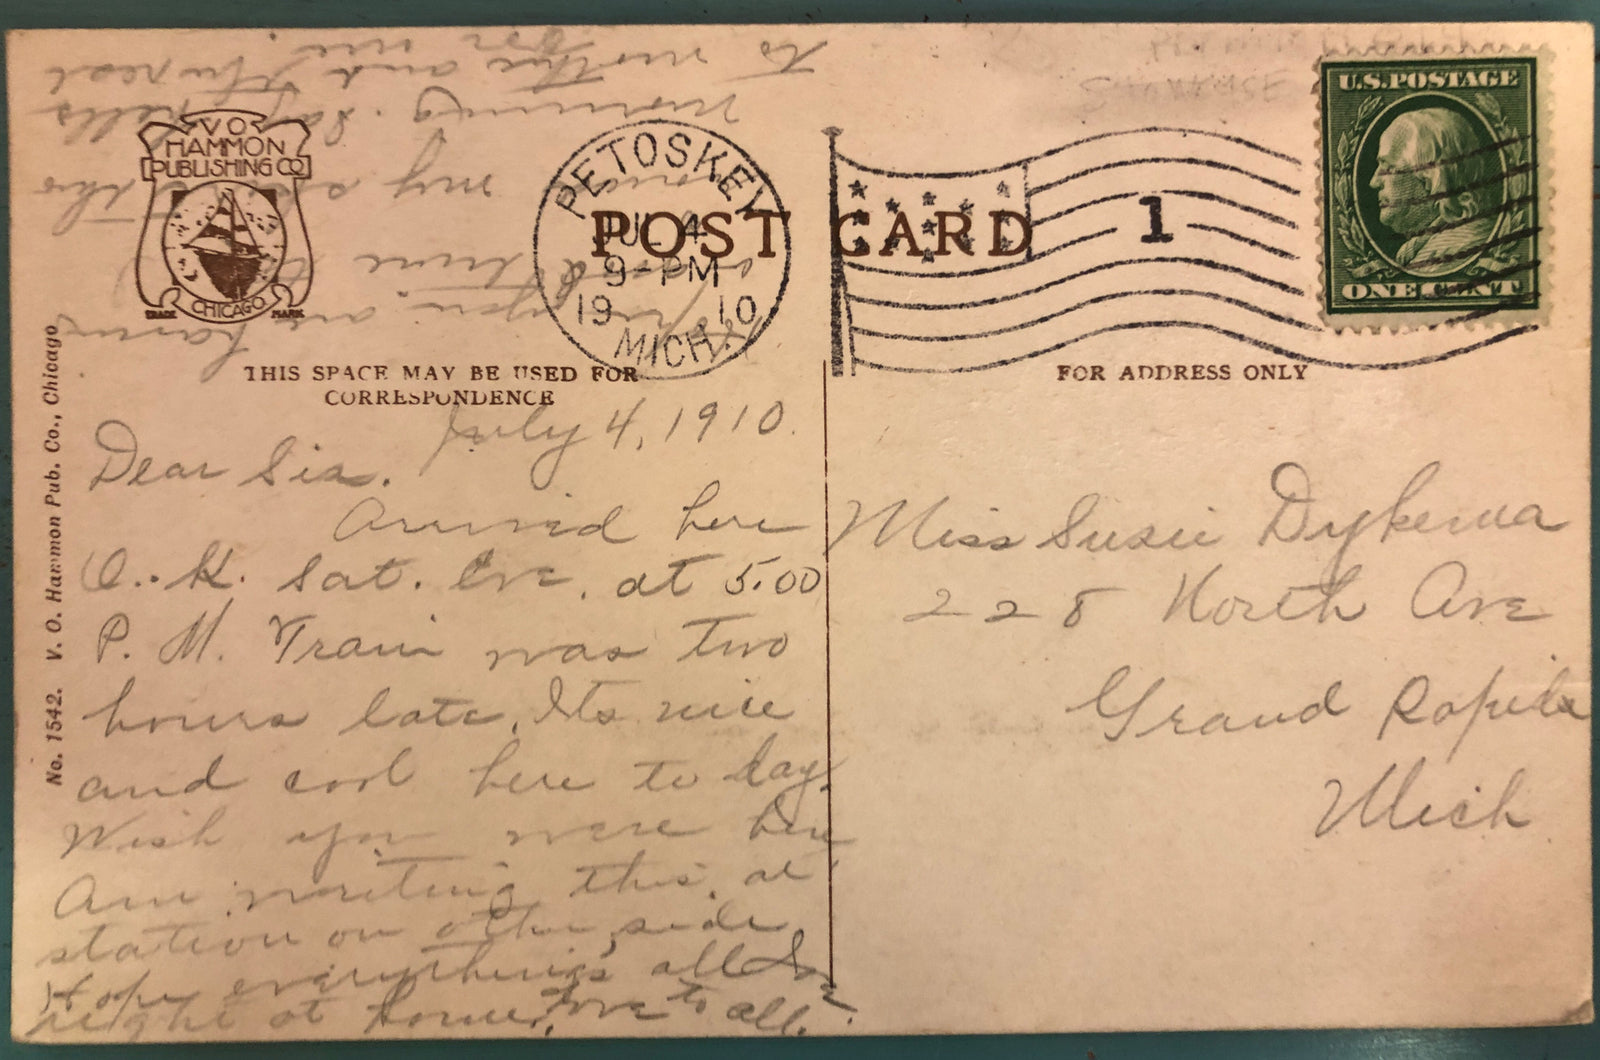 V O
HAMMON
PUBLISHING CO
CHICAGO
TRADE MARK
PETOSKEY
JUL 4
9-PM
1910
MICH.
POST CARD
1
U.S.POSTAGE
ONE CENT
THIS SPACE MAY BE USED FOR
CORRESPONDENCE
FOR ADDRESS ONLY
No. 1542. V. O. Hammon Pub. Co., Chicago
July 4, 1910.
Dear Sis.
Arrived here
O.. K. Sat. Eve. at 5.00
P. M. Train was two
hours late. Its nice
and cool here to day.
Wish you were here
Am writing this at
station on other side
Hope everything's all
right at home. Love to all.
you are
good time
my
morning. Say hello
to mother and
for me.
Miss Susie Dykema
228 North Ave
Grand Rapids
Mich